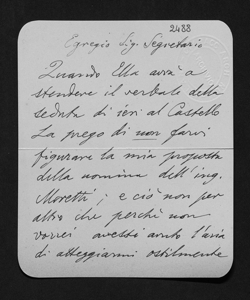 2488
Egregio Sig. Segretario
Quando Ella avrà a
stendere il verbale della
seduta di ieri al Castello
La prego di non farvi
figurare la mia proposta
della nomina dell'ing.
Moretti; e ciò non per
altro che perchè non
vorrei avessi avuto l'aria
di atteggiarmi ostilmente